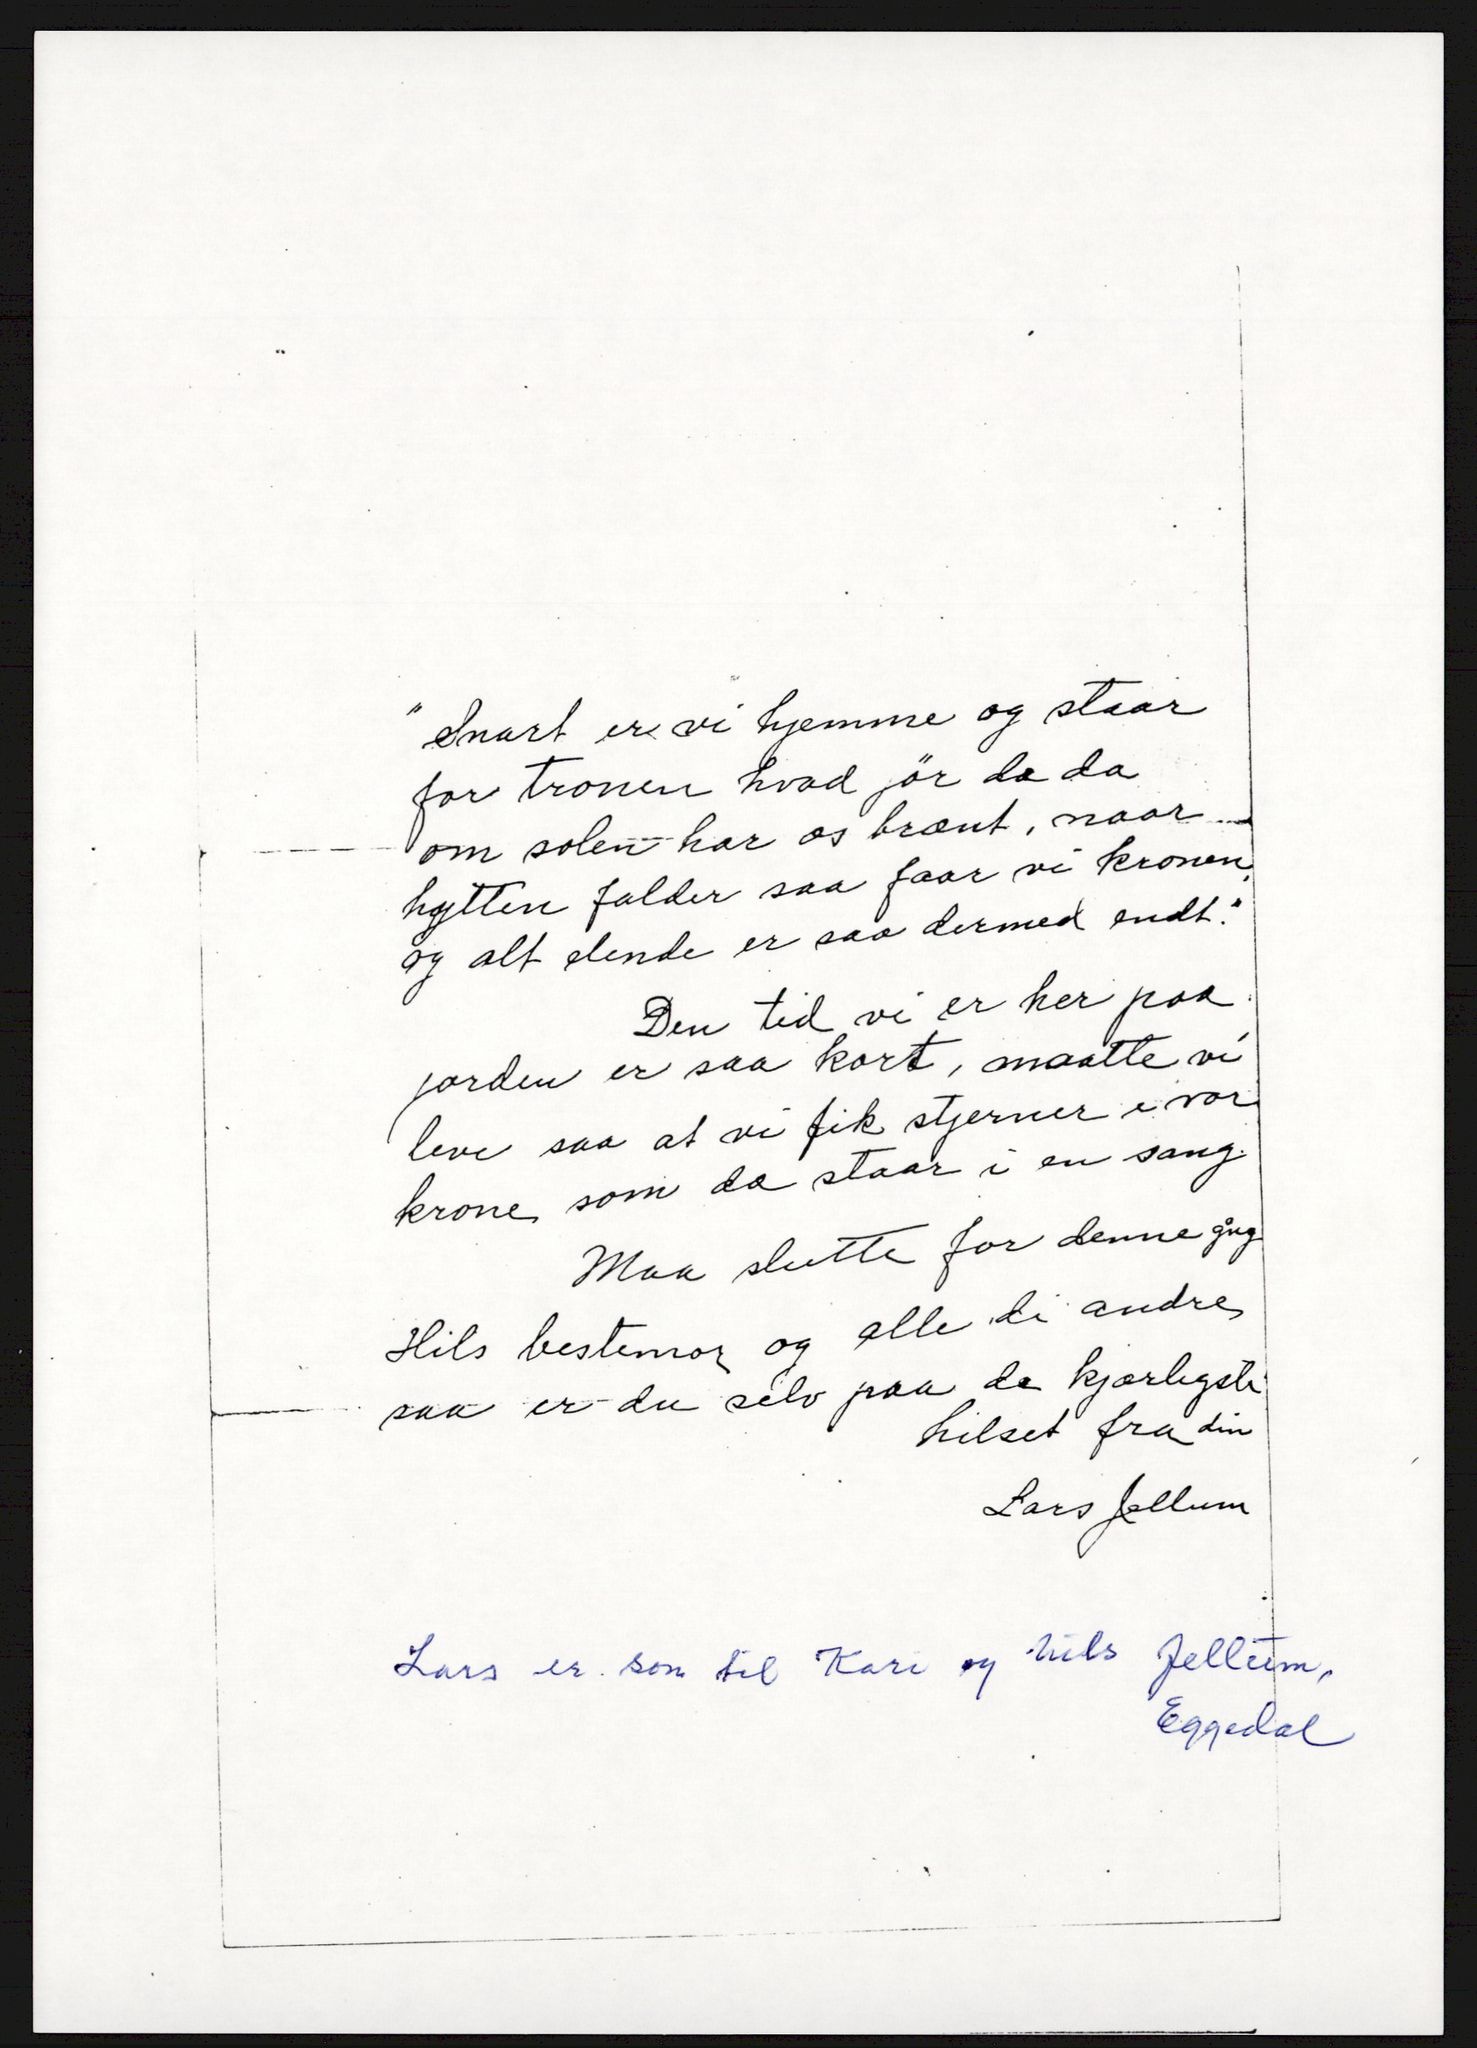 "Snart er vi hjemme og staar
for tronen hvad jör de da
om solen har os brænt, naar
hytten falder saa faar vi kronen,
og alt elende er saa dermed endt."
Den tid vi er her paa
jorden er saa kort, maatte vi
leve saa at vi fik stjerner i vor
krone som de staar i en sang.
Maa slutte for denne gång
Hils bestemor og alle di andre
saa er du selv paa de kjærligste
hilset fra din
Lars Jellum
Lars er son til Kari og Nils Jellum,
Eggedal